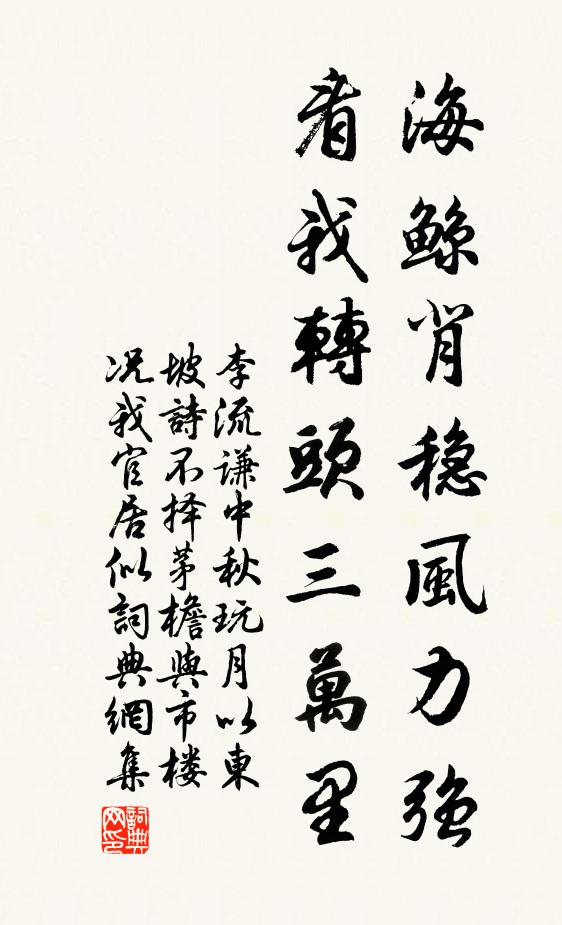 海鲸背稳風力強
看我轉頭三萬里
李流谦中秋玩月以東
坡詩不择茅檐與市楼
况我官居似詞典網集
詞典
网印